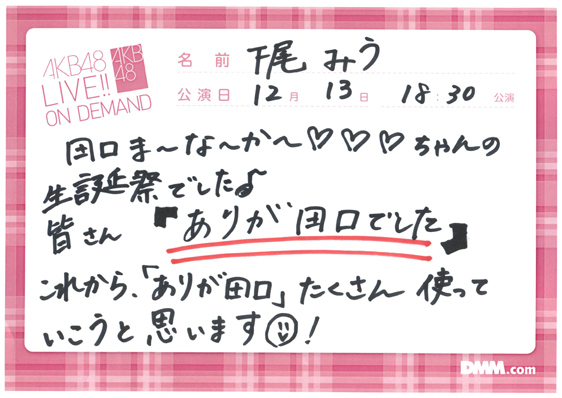 AKB48
LIVE!!
ON DEMAND
AKB
48
名前 下尾 みう
公演日 12月 13日 18:30 公演
田口ま〜な〜か〜♡♡♡ちゃんの
生誕祭でした♪
皆さん 『ありが田口でした』
これから、「ありが田口」たくさん使って
いこうと思います☺!
DMM.com